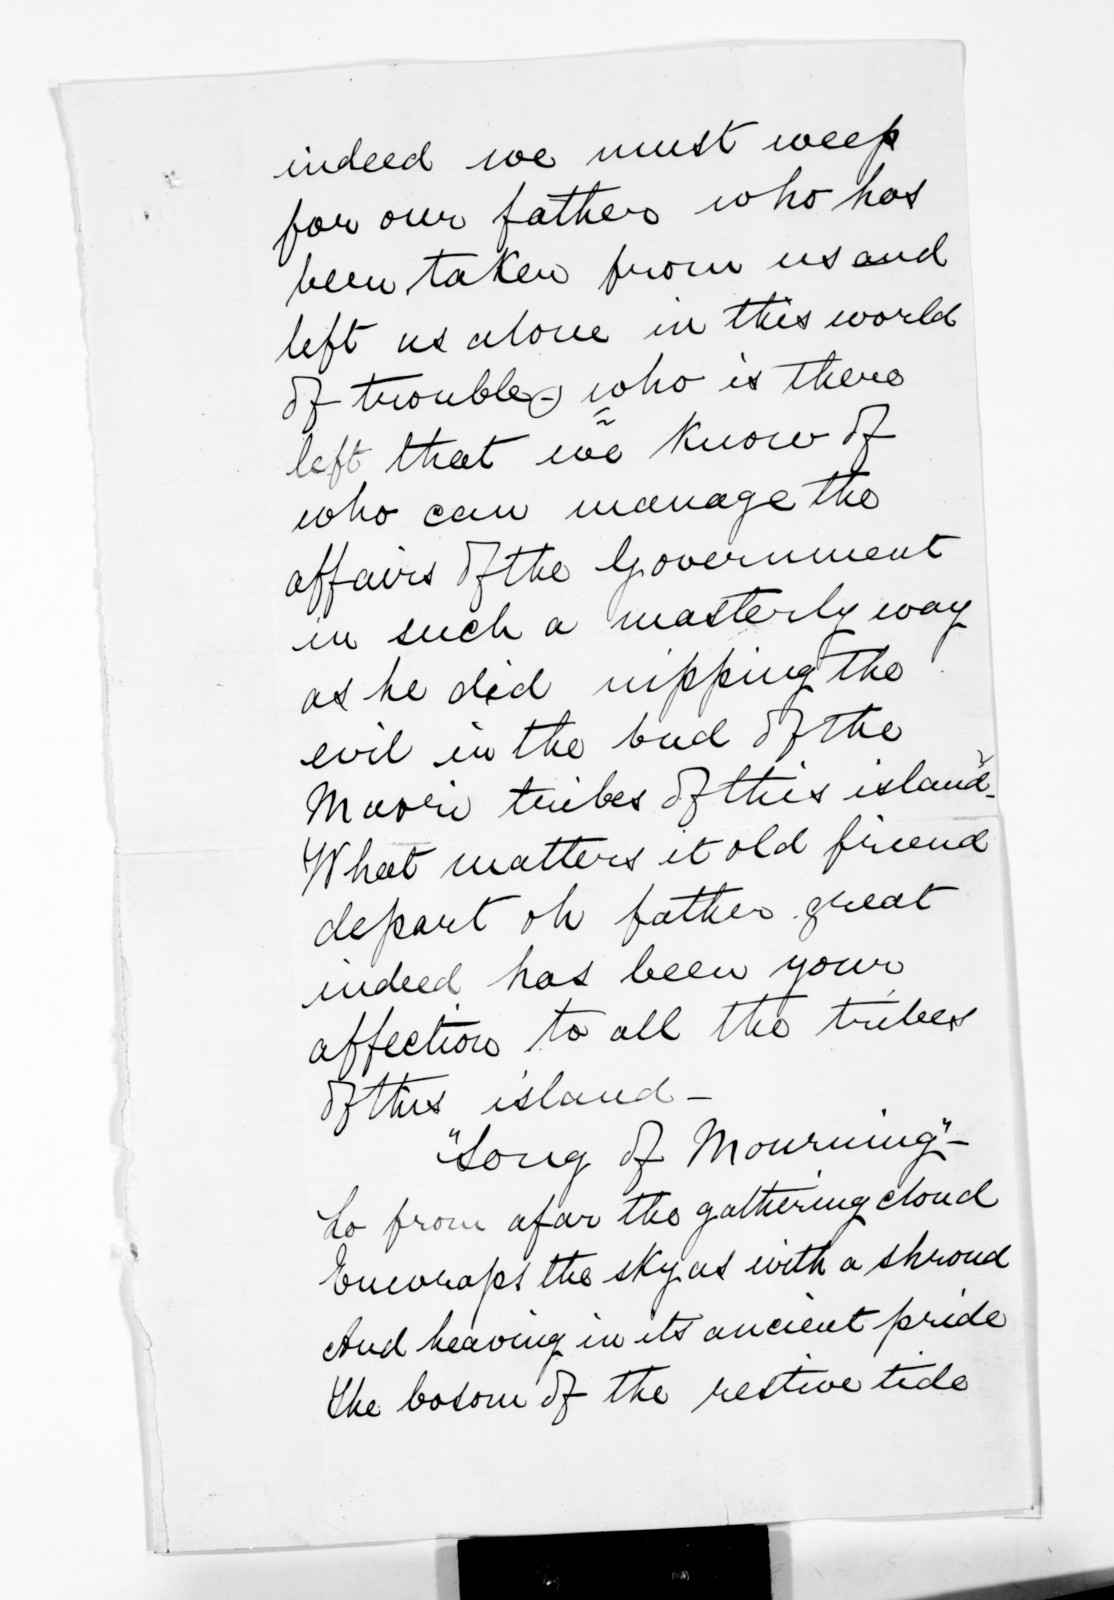 indeed we must weep
for our father who has
been taken from us and
left us alone in this world
of trouble - who is there
left that we know of
who can manage the
affairs of the Government
in such a masterly way
as he did nipping the
evil in the bud of the
Maori tribes of this island -
What matters it old friend
depart oh father great
indeed has been your
affection to all the tribes
of this island -
"Song of Mourning" -
Lo from afar the gathering cloud
Enwraps the sky as with a shroud
And heaving in its ancient pride
The bosom of the restive tide